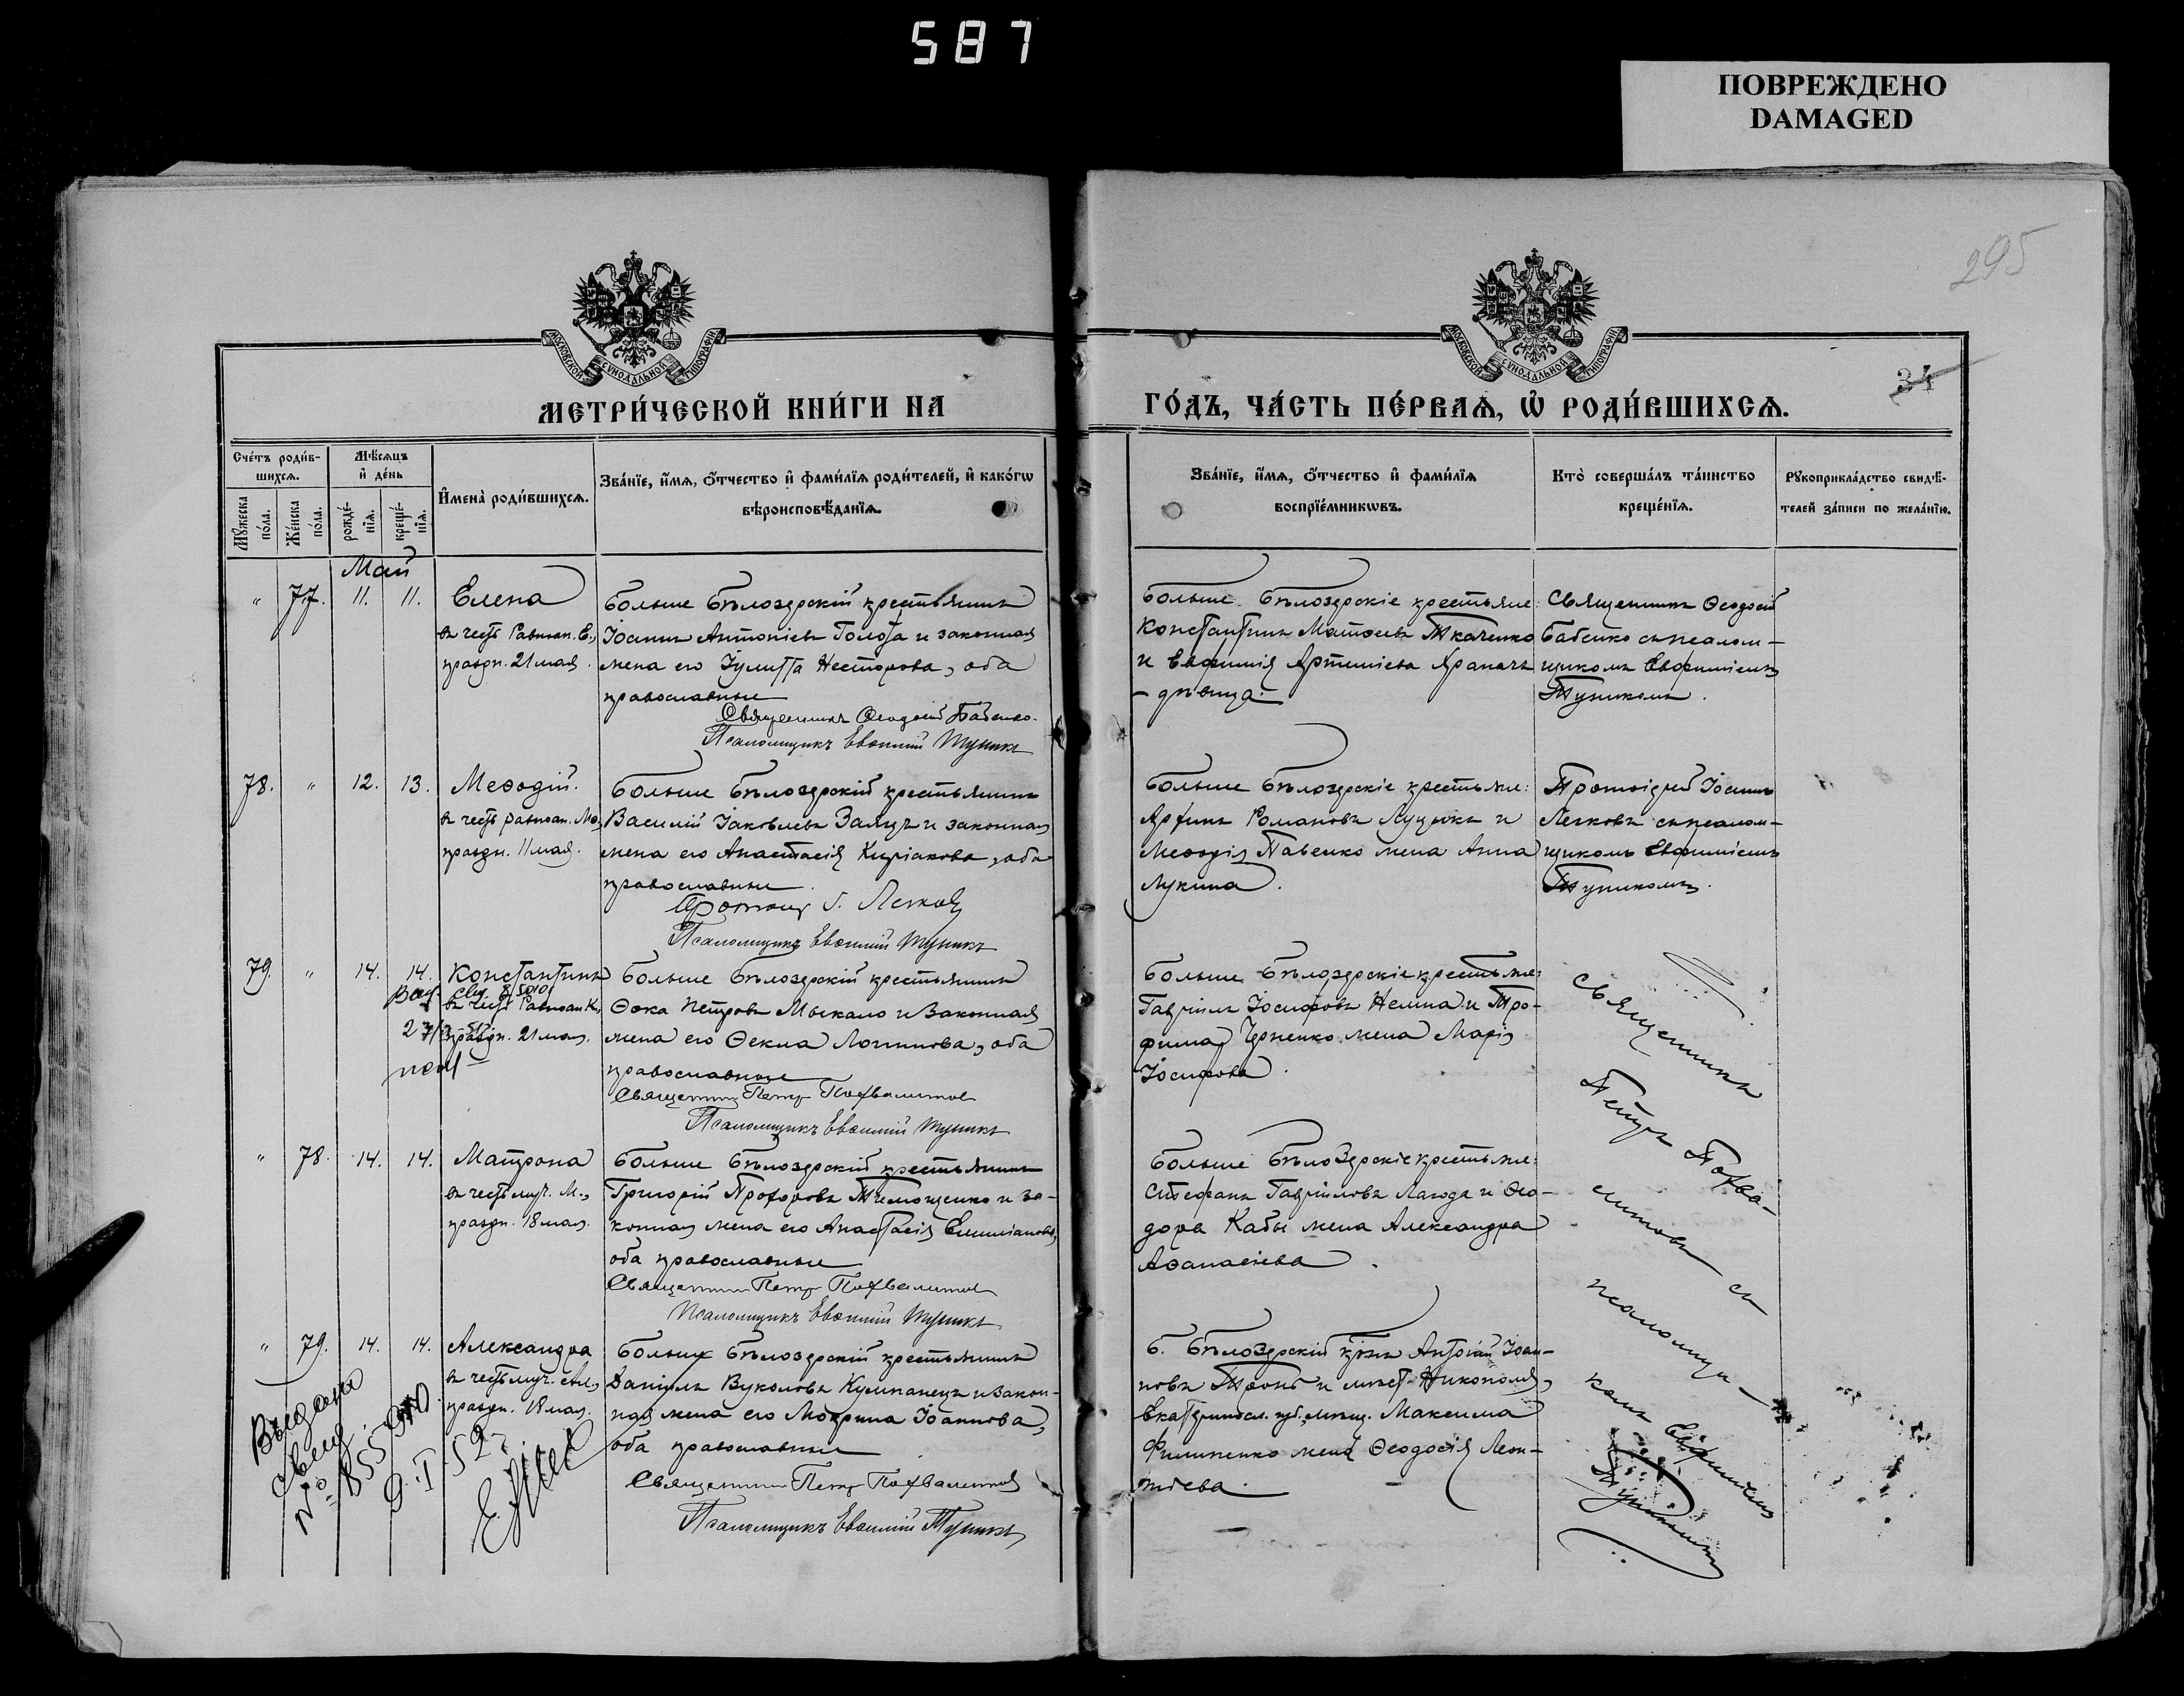 587
ПОВРЕЖДЕНО
DAMAGED
295
34
МОСКОВСКОЙ СУНОДАЛЬНОЙ ТИПОГРАФІИ
МОСКОВСКОЙ СУНОДАЛЬНОЙ ТИПОГРАФІИ
МЕТРИ́ЧЕСКОЙ КНИ́ГИ НА
ГО́ДЪ, ЧА́СТЬ ПЕ́РВАѦ, Ѡ҆ РОДИ́ВШИХСѦ.
Сче́тъ роди́в-
шихсѧ.
Мꙋ́жеска по́ла.
Же́нска по́ла.
Мѣ́сѧцъ
и҆ де́нь
рожде́-
нїѧ.
креще́-
нїѧ.
И҆мена̀ роди́вшихсѧ.
Зва́нїе, и҆́мѧ, ѻ҆́тчество и҆ фами́лїѧ роди́телей, и҆ како́гѡ
вѣроисповѣ́данїѧ.
Зва́нїе, и҆́мѧ, ѻ҆́тчество и҆ фами́лїѧ
воспрїе́мникѡвъ.
Кто̀ соверша́лъ та́инство
креще́нїѧ.
Рꙋкоприкла́дство свидѣ́-
телей за́писи по жела́нїю.
Май
" 77. 11. 11. Елена
въ честь Равноап. Е.,
праздн. 21 мая.
Больше Бѣлозерскій крестьянинъ
Іоаннъ Антоніевъ Голота и законная
жена его Іулитта Несторова, оба
православные
Священникъ Ѳеодосій Бабенко.
Псаломщикъ Евѳимій Тупикъ
Больше Бѣлозерскіе крестьяне:
Константинъ Матѳеевъ Ткаченко
и Евфимія Артеміева Храпачъ
- дѣвица.
Священникъ Ѳеодосій
Бабенко съ псалом-
щикомъ Евфиміемъ
Тупикомъ.
78. " 12. 13. Меѳодій.
въ честь равноап. Ме,
праздн. 11 мая.
Больше Бѣлозерскій крестьянинъ
Василій Іаковлевъ Заяцъ и законная
жена его Анастасія Киріакова, оба
православные.
Протоіер І. Легковъ
Псаломщикъ Евѳимій Тупикъ
Больше Бѣлозерскіе крестьяне:
Романовъ Луценко и
Меѳодія Павенко жена Анна
Лукина.
Протоіерей Іоаннъ
Легковъ съ псалом-
щикомъ Евфиміемъ
Тупикомъ.
79. " 14. 14. Константинъ
въ честь Равноап К.,
праздн. 21 мая.
Больше Бѣлозерскій крестьянинъ
Ѳока Петровъ Мыкало и законная
жена его Ѳекла Логгинова, оба
православные
Священник Петр Похвалитов
Псаломщикъ Евѳимій Тупикъ
Больше Бѣлозерскіе крестьяне:
Гавріилъ Іосифовъ Нелипа и Тро-
фима Черненко жена Марія
Іосифова.
" 78. 14. 14. Матрона
въ честь муч. М.,
праздн. 18 мая.
Больше Бѣлозерскій крестьянинъ
Григорій Прохоровъ Тимощенко и за-
конная жена его Анастасія Емиліанова,
оба православные
Священник Петр Похвалитов
Псаломщикъ Евѳимій Тупикъ
Больше Бѣлозерскіе крестьяне:
Стефанъ Гавріиловъ Лагода и Ѳео-
дора Кабы жена Александра
Аѳанасіева.
" 79. 14. 14. Александра
въ честь муч. Ал.,
праздн. 18 мая.
Больше Бѣлозерскій крестьянинъ
Даніилъ Вуколовъ Кулпанецъ и закон-
ная жена его Мокрина Іоаннова,
оба православные
Священник Петр Похвалитов
Псаломщикъ Евѳимій Тупикъ
Б. Бѣлозерскій Антоній Іоан-
новъ Тронь и мѣст. Никополя,
Екатериносл. губ., мѣщ. Максима
Филипенко жена Ѳеодосія Леон-
тіева.
Священникъ
Петръ Похва-
литовъ съ
псаломщи-
комъ Евфиміемъ
Тупикомъ
Выдано
свид.
№ 855
9.I.52 г.